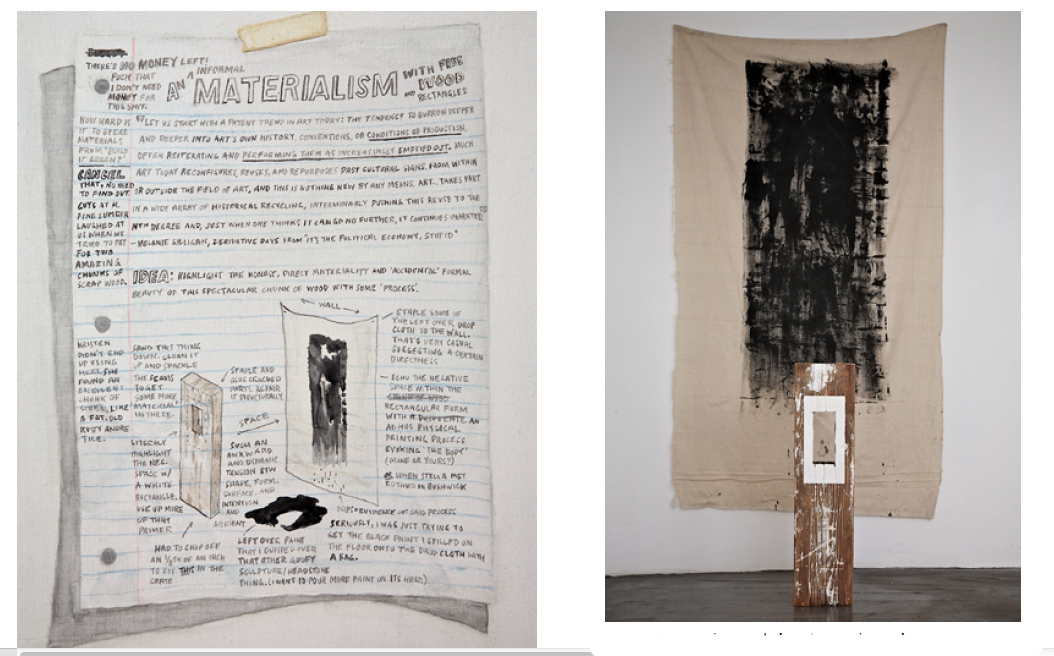 THERE'S NO MONEY LEFT!
FUCK THAT
I DON'T NEED
MONEY FOR
THIS SHIT.
AN INFORMAL
MATERIALISM
WITH FREE
WOOD
AND RECTANGLES
HOW HARD IS
IT TO STEAL
MATERIALS
FROM "BUILD
IT GREEN?"
CANCEL
THAT, NO NEED
TO FIND OUT.
GUYS AT M.
FINE LUMBER
LAUGHED AT
US WHEN WE
TRIED TO PAY
FOR TWO
AMAZING
CHUNKS OF
SCRAP WOOD.
"LET US START WITH A PATENT TREND IN ART TODAY: THE TENDENCY TO BURROW DEEPER
AND DEEPER INTO ART'S OWN HISTORY, CONVENTIONS, OR CONDITIONS OF PRODUCTION,
OFTEN REITERATING AND PERFORMING THEM AS INCREASINGLY EMPTIED OUT. MUCH
ART TODAY RECONFIGURES, REUSES, AND REPURPOSES PAST CULTURAL SIGNS. FROM WITHIN
OR OUTSIDE THE FIELD OF ART, AND THIS IS NOTHING NEW BY ANY MEANS. ART.. TAKES PART
IN A WIDE ARRAY OF HISTORICAL RECYCLING, INTERMINABLY PUSHING THIS REUSE TO THE
NTH DEGREE AND, JUST WHEN ONE THINKS IT CAN GO NO FURTHER, IT CONTINUES UNABATED"
-MELANIE GILLIGAN, DERIVATIVE DAYS FROM "IT'S THE POLITICAL ECONOMY, STUPID"
IDEA: HIGHLIGHT THE HONEST, DIRECT MATERIALITY AND 'ACCIDENTAL' FORMAL
BEAUTY OF THIS SPECTACULAR CHUNK OF WOOD WITH SOME 'PROCESS'.
KRISTEN
DIDN'T END
UP USING
HERS. SHE
FOUND AN
EXCELLENT
CHUNK OF
STEEL, LIKE
A FAT, OLD
RUSTY ANDRE
TILE.
SAND THIS THING
DOWN. CLEAN IT
UP AND SPACKLE
THE SEAMS
TO GET
SOME MORE
MATERIAL
IN THERE.
LITERALLY
HIGHLIGHT
THE NEG.
SPACE W/
A WHITE
RECTANGLE.
USE UP MORE
OF THAT
PRIMER
HAD TO CHOP OFF
AN 1/8TH OF AN INCH
TO FIT THIS IN THE
CRATE
STAPLE AND
GLUE CRACKED
PART. REPAIR
IT STRUCTURALLY
SPACE
SUCH AN
AWKWARD
AND DYNAMIC
TENSION BTW
SHAPE, FORM,
SURFACE, AND
INTENTION
AND
ACCIDENT
LEFT OVER PAINT
THAT I DUMPED OVER
THAT OTHER GOOFY
SCULPTURE/HEADSTONE
THING. (I WANT TO POUR MORE PAINT ON ITS HEAD)
WALL
STAPLE SOME OF
THE LEFT OVER DROP
CLOTH TO THE WALL.
THAT'S VERY CASUAL
SUGGESTING A CERTAIN
DIRECTNESS
ECHO THE NEGATIVE
SPACE WITHIN THE
CHUNK OF WOOD
RECTANGULAR FORM
WITH AN
AD HOC PHYSICAL
PRINTING PROCESS
EVOKING "THE BODY"
(MINE OR YOURS?)
WHEN STELLA MET
ROTHKO IN BUSHWICK
DRIPS = EVIDENCE OF SAID PROCESS
SERIOUSLY, I WAS JUST TRYING TO
GET THE BLACK PAINT I SPILLED ON
THE FLOOR ONTO THE DROP CLOTH WITH
A RAG.